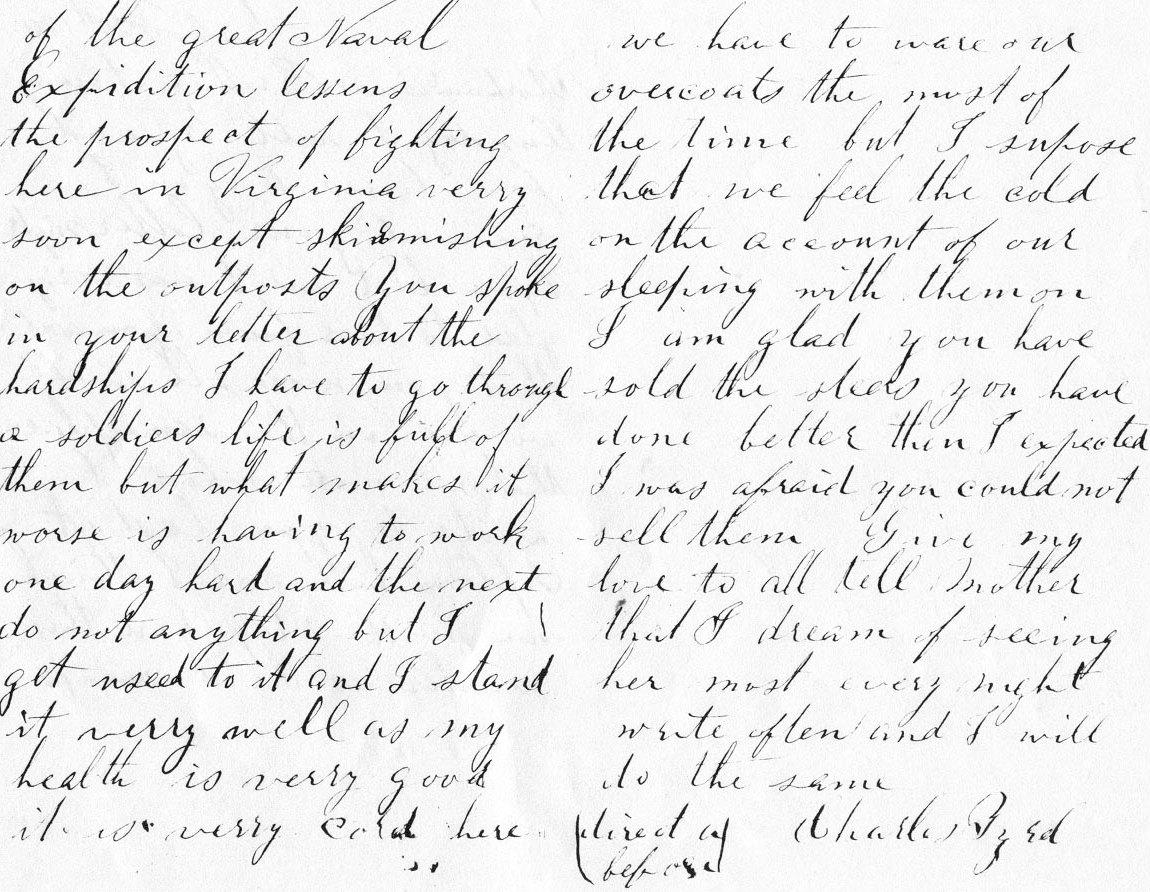 of the great Naval
Expidition lessens
the prospect of fighting
here in Virginia verry
soon except skirmishing
on the outposts You spoke
in your letter about the
hardships I have to go through
a soldiers life is full of
them but what makes it
worse is having to work
one day hard and the next
do not anything but I
get used to it and I stand
it verry well as my
health is verry good
it is verry cord here
we have to ware our
overcoats the most of
the time but I supose
that we feel the cold
on the account of our
sleeping with them on
I am glad you have
sold the steers you have
done better then I expected
I was afraid you could not
sell them Give my
love to all tell Mother
that I dream of seeing
her most every night
write often and I will
do the same
(direct as Charles Byrd
before)